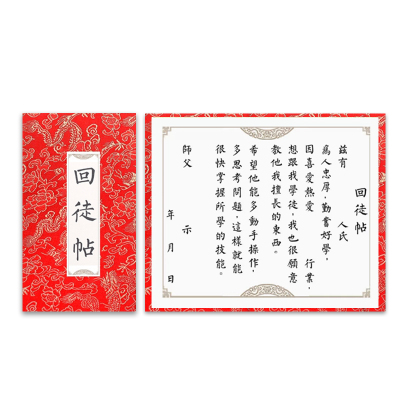 回徒帖
回徒帖
茲有　　人氏
為人忠厚，勤奮好學，
因喜愛熱愛　　行業，
想跟我學徒，我也很願意
教他我擅長的東西。
希望他能多動手操作，
多思考問題，這樣就能
很快掌握所學的技能。
師父　　示
年　月　日